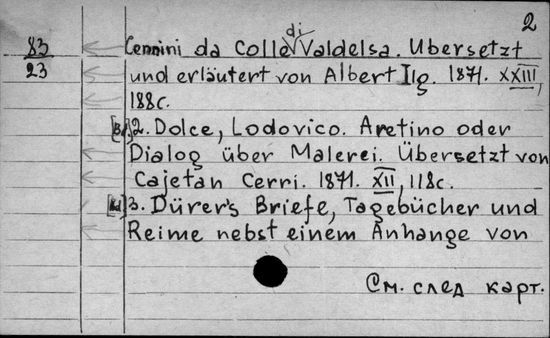 2
83
23
Cennini da Colle di Valdelsa. Übersetzt
und erläutert von Albert Ilg. 1871. XXIII,
188c.
[Bd.] 2. Dolce, Lodovico. Aretino oder
Dialog über Malerei. Übersetzt von
Cajetan Cerri. 1871. XII, 118c.
[Bd.] 3. Dürer's Briefe, Tagebücher und
Reime nebst einem Anhange von
См. след карт.